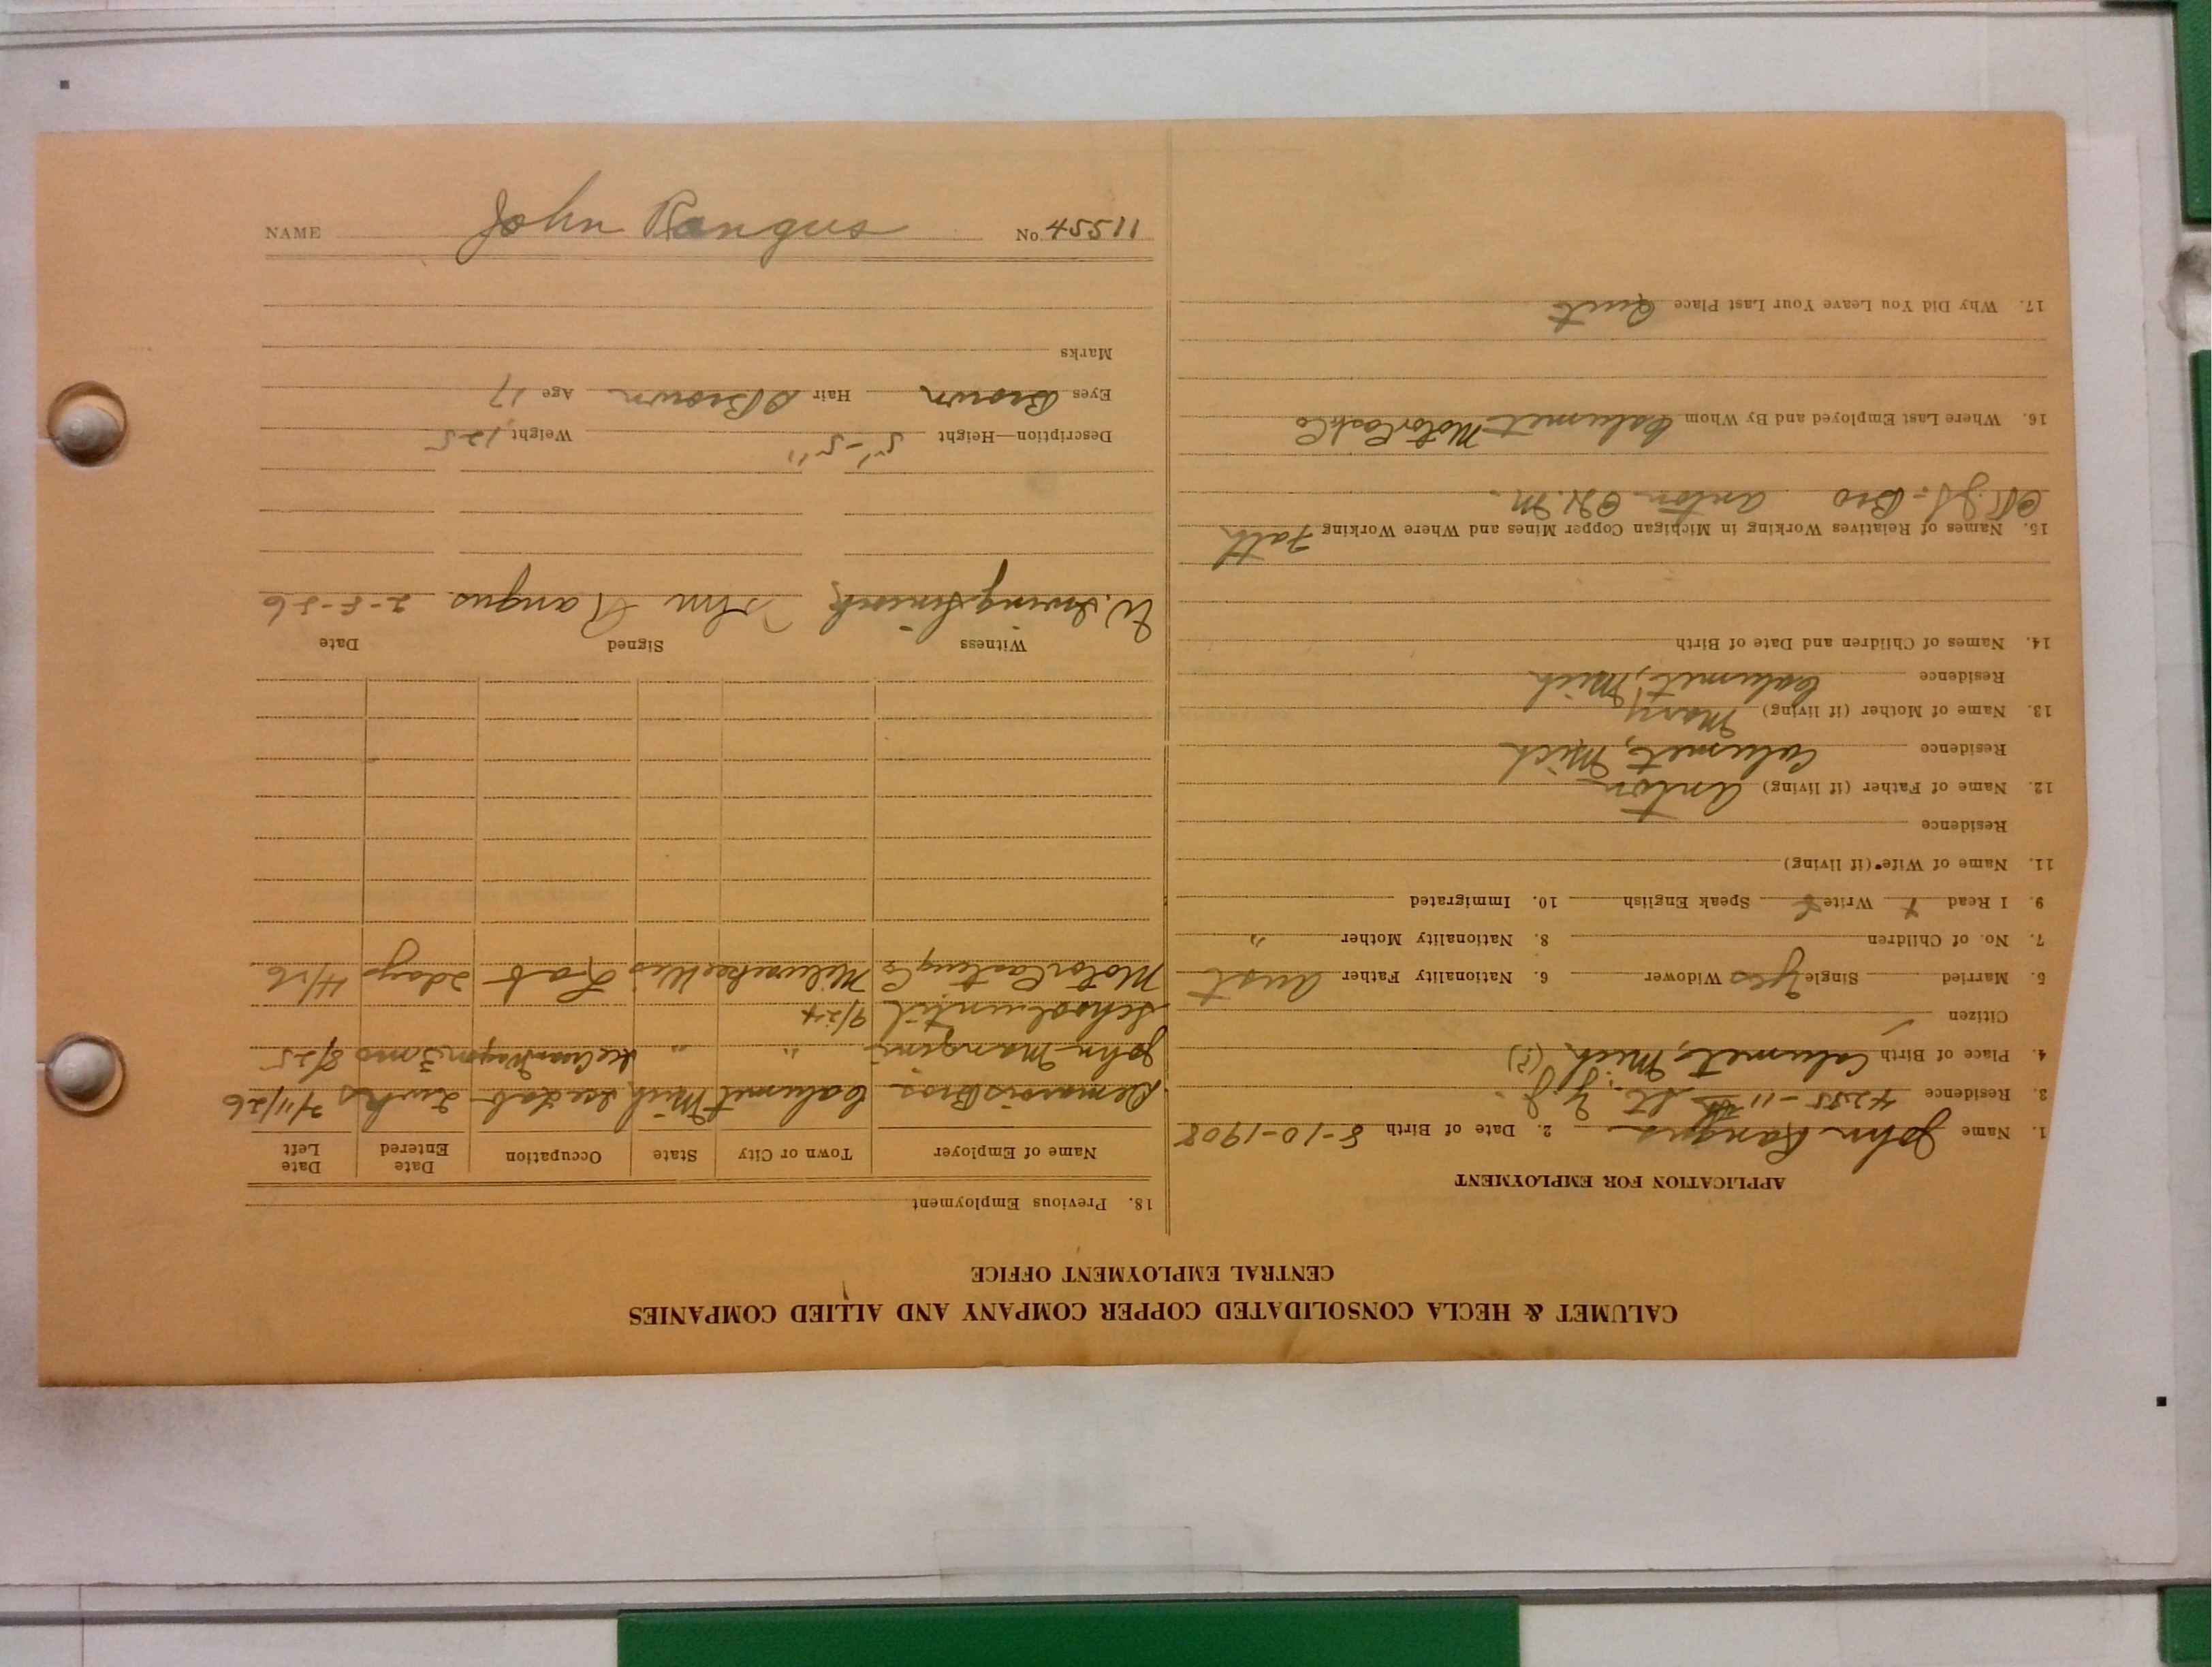 NAME John Rangus No. 45511
CALUMET & HECLA CONSOLIDATED COPPER COMPANY AND ALLIED COMPANIES
CENTRAL EMPLOYMENT OFFICE
APPLICATION FOR EMPLOYMENT
1. Name John Rangus 2. Date of Birth 8-10-1908
3. Residence 4255-11th St. Y.J.
4. Place of Birth Calumet, Mich (?)
Citizen
5. Married Single Yes Widower 6. Nationality Father Aust
7. No. of Children 8. Nationality Mother "
9. I Read Write Speak English 10. Immigrated
11. Name of Wife (if living)
Residence
12. Name of Father (if living) Anton
Residence Calumet, Mich
13. Name of Mother (if living) Mary
Residence Calumet, Mich
14. Names of Children and Date of Birth
15. Names of Relatives Working in Michigan Copper Mines and Where Working Fath
Bro Anton
16. Where Last Employed and By Whom Calumet Motor Cast Co
17. Why Did You Leave Your Last Place Quit
18. Previous Employment
Name of Employer Town or City State Occupation Date Entered Date Left
Demarois Bros. Calumet Mich Ice Lab 2 wks 2/1/26
John Mangini " " Ice Cream Wagon 3 mo 8/25
School until 9/24
Motor Casting Co Milwaukee Wis Lab 2 days 4/26
Witness Signed Date
W. Irving John Rangus 2-5-26
Description—Height 5'-5" Weight 125
Eyes Brown Hair D Brown Age 17
Marks